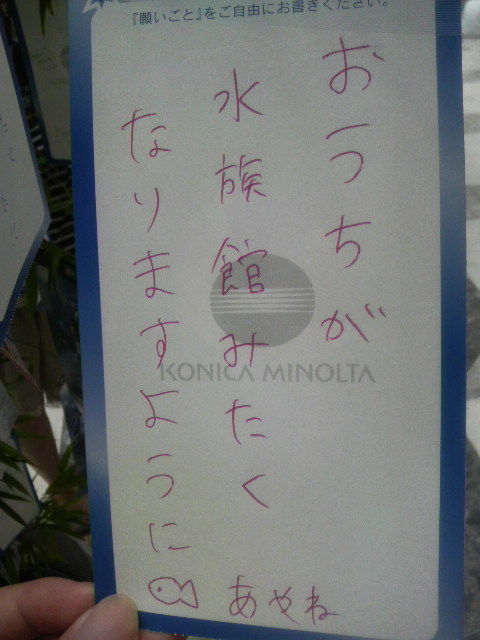 『願いごと』をご自由にお書きください。
おうちが
水族館みたく
なりますように
あやね
KONICA MINOLTA